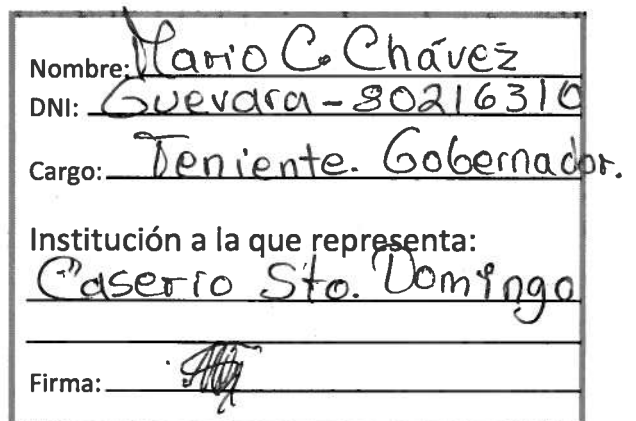 Nombre: Mario C. Chávez
DNI: Guevara - 80216310
Cargo: Teniente. Gobernador.
Institución a la que representa:
Caserio Sto. Domingo
Firma: